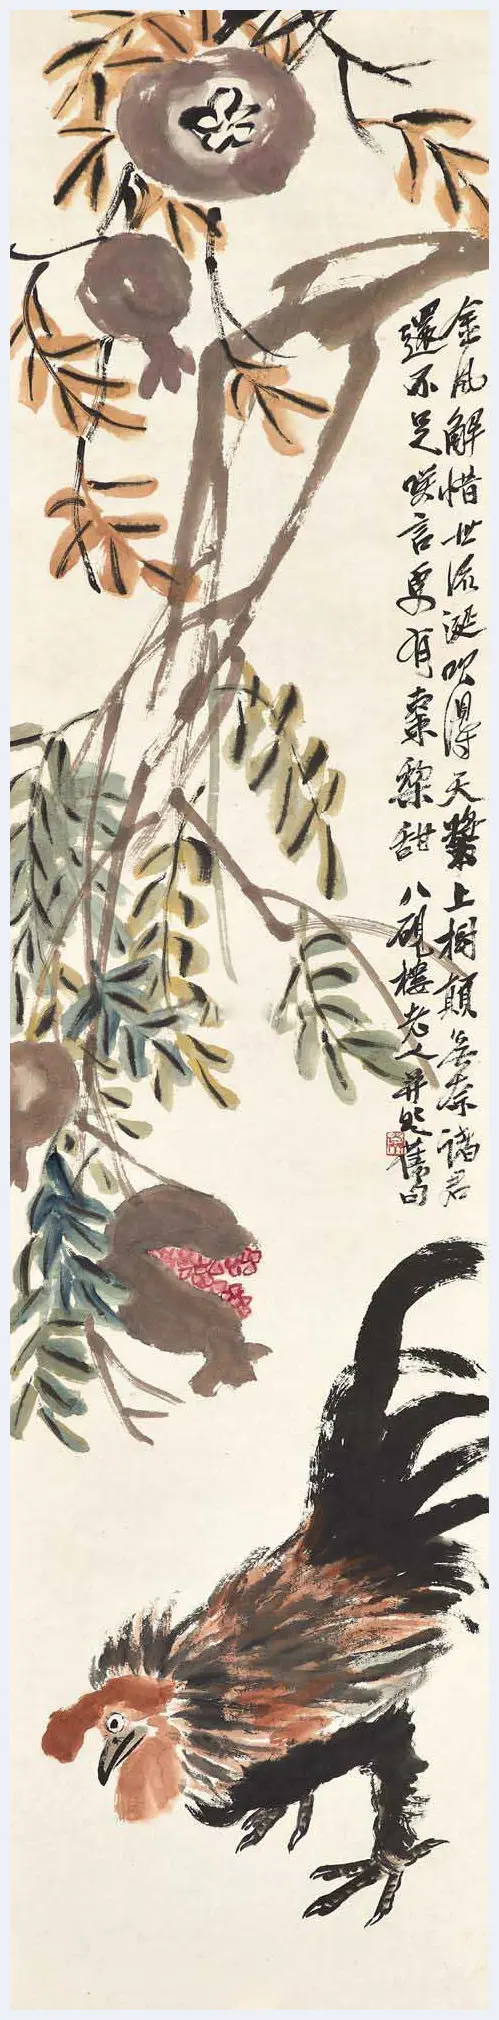 金風解惜世流涎吹得天漿上樹顛無奈諸君
還不足咲言更有棗黎甜 八硯樓老人并題舊句